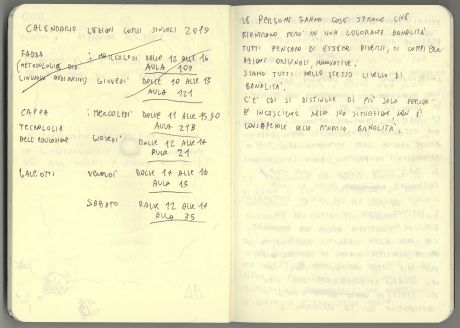 CALENDARIO LEZIONI CORSI SINGOLI 2019
FADDA : MERCOLEDÌ DALLE 12 ALLE 16
(METODOLOGIE DEI AULA 109
LINGUAGGI AUDIOVISIVI) GIOVEDÌ DALLE 10 ALLE 13
AULA 121
CAPPA : MERCOLEDÌ DALLE 11 ALLE 13,30
TECNOLOGIA AULA 21B
DELL'EDUCAZIONE GIOVEDÌ DALLE 12 ALLE 14
AULA 21
VENERDÌ DALLE 14 ALLE 16
AULA 13
SABATO DALLE 12 ALLE 17
AULA 35
LE PERSONE FANNO COSE STRANE CHE
RIENTRANO PERÒ IN UNA LOGORANTE BANALITÀ.
TUTTI PENSANO DI ESSERE DIVERSI, DI COMPIERE
AZIONI ORIGINALI, INNOVATIVE.
SIAMO TUTTI DELLO STESSO LIVELLO DI
BANALITÀ.
C'È CHI SI DISTINGUE DI PIÙ SOLO PERCHÉ
È INCOSCIENTE DELLA SUA SITUAZIONE NON È
CONSAPEVOLE DELLA PROPRIA BANALITÀ.